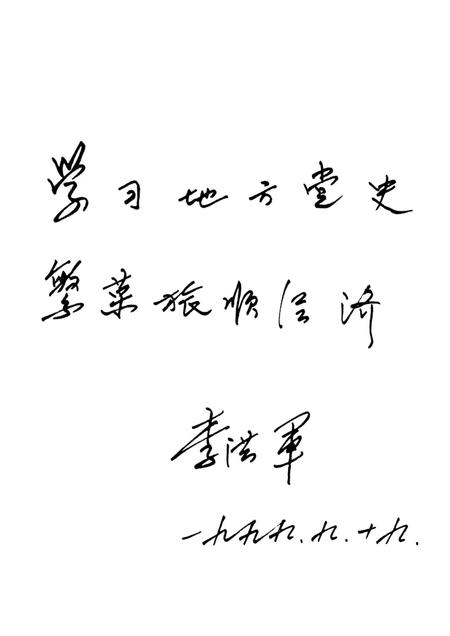 学习地方党史
繁荣旅顺经济
李洪軍
一九九九.九.十九.